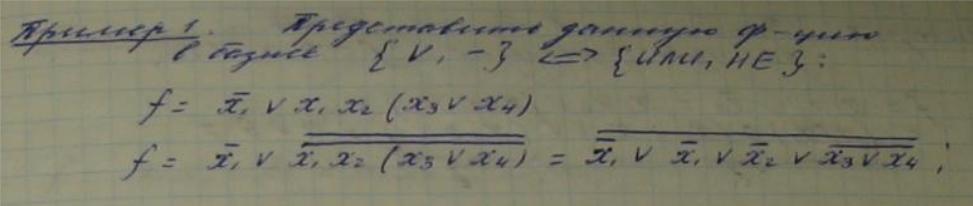 Пример 1. Представить данную ф-цию
в базисе {V, -} <=> {ИЛИ, НЕ}:
f = x̄₁ v x₁ x₂ (x₃ v x₄)
f = x̄₁ v \overline{\overline{x₁ x₂ (x₃ v x₄)}} = \overline{\overline{x̄₁ v x̄₁ v x̄₂ v \overline{x₃ v x₄}}};